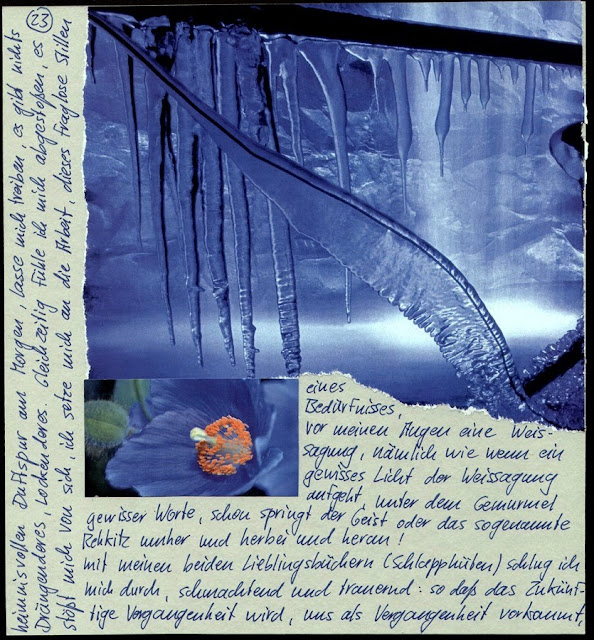 23
heimnisvollen Duftspur am Morgen, lasse mich treiben, es gibt nichts
Drängenderes, Lockenderes. Gleichzeitig fühle ich mich abgestoßen, es
stößt mich von sich, ich setze mich an die Arbeit, dieses fraglose Stillen
eines
Bedürfnisses,
vor meinen Augen eine Weis-
sagung, nämlich wie wenn ein
gewisses Licht der Weissagung
aufgeht, unter dem Gemurmel
gewisser Worte, schon springt der Geist oder das sogenannte
Rehkitz umher und herbei und heran!
mit meinen beiden Lieblingsbüchern (Schlapphüten) schlug ich
mich durch, schmachtend und trauernd: so daß das Zukünf-
tige Vergangenheit wird, uns als Vergangenheit vorkommt,